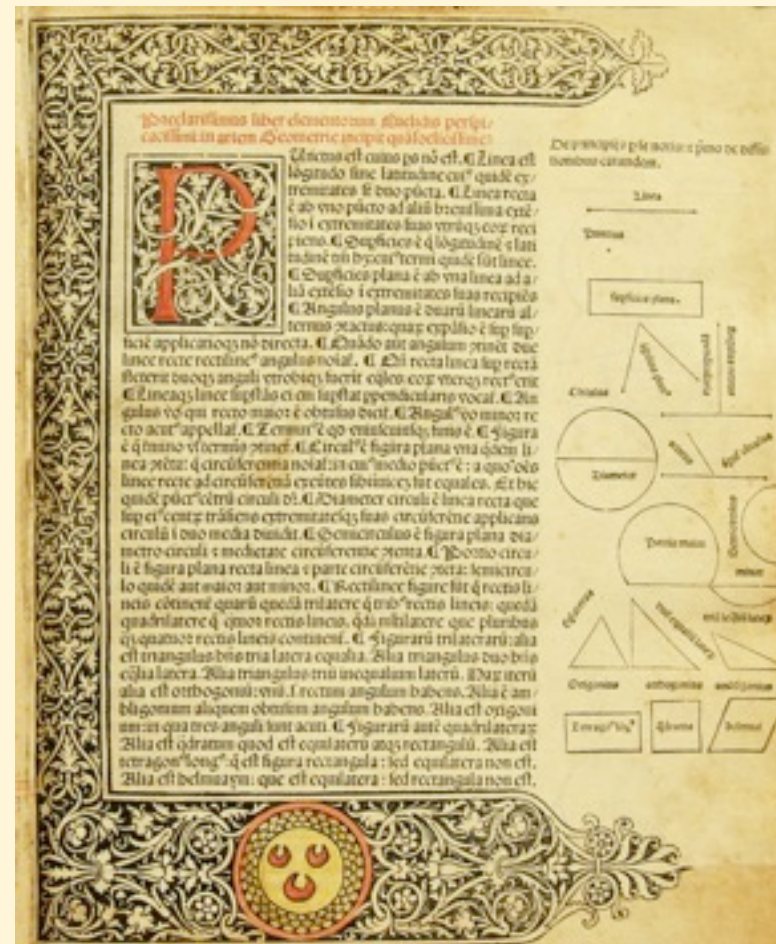 Preclarissimus liber elementorum Euclidis perspi/
cacissimi: in artem Geometrie incipit quãfoelicissime:
Punctus est cuius ps nõ est. ¶ Linea est
lõgitudo sine latitudine cui⁹ quidẽ ex/
tremitates st duo pũcta. ¶ Linea recta
ẽ ab vno pũcto ad aliũ breuissima extẽ/
sio i extremitates suas vtrũqꝫ eoꝝ reci
piens. ¶ Supficies ẽ q̃ lõgitudinẽ ⁊ lati
tudinẽ tm̃ hꝫ: cui⁹ termi quidẽ sũt linee.
¶ Supficies plana ẽ ab vna linea ad a/
liã extẽsio i extremitates suas recipiẽs
¶ Angulus planus ẽ duarũ linearũ al/
ternus ꝯtactus: quaꝝ expãsio ẽ sup sup/
ficiẽ applicatioqꝫ nõ directa. ¶ Quãdo aũt angulum ꝯtinẽt due
linee recte rectiline⁹ angulus noiať. ¶ Qñ recta linea sup rectã
steterit duoqꝫ anguli vtrobiqꝫ fuerit eq̃les: eoꝝ vterqꝫ rect⁹ erit
¶ Lineaqꝫ linee supstãs ei cui supstat ppendicularis vocať. ¶ An
gulus vo qui recto maior ẽ obtusus dicit. ¶ Angul⁹ vo minor re
cto acut⁹ appellať. ¶ Termin⁹ ẽ qd vniuscuiusqꝫ finis ẽ. ¶ Figura
ẽ q̃ tmino vl terminis ꝯtineť. ¶ Circul⁹ ẽ figura plana vna q̃dem li/
nea ꝯtẽta: q̃ circũferentia noiať: in cui⁹ medio pũct⁹ ẽ: a quo oẽs
linee recte ad circũferẽtiã exeũtes sibiinuicẽ sũt equales. Et hic
quidẽ pũct⁹ cẽtrũ circuli dr. ¶ Diameter circuli ẽ linea recta que
sup ei⁹ centꝝ trãsiens extremitatesqꝫ suas circũferẽtie applicans
circulũ i duo media diuidit. ¶ Semicirculus ẽ figura plana dia/
metro circuli ⁊ medietate circũferentie ꝯtenta. ¶ Portio circu/
li ẽ figura plana recta linea ⁊ parte circũferẽtie ꝯtẽta: semicircu/
lo quidẽ aut maior aut minor. ¶ Rectilinee figure sũt q̃ rectis li/
neis cõtinent quarũ quedã trilatere q̃ trib⁹ rectis lineis: quedã
quadrilatere q̃ q̃tuor rectis lineis. q̃dã mltilatere que pluribus
qꝫ quatuor rectis lineis continent. ¶ Figurarũ trilaterarũ: alia
est triangulus hñs tria latera equalia. Alia triangulus duo hñs
eq̃lia latera. Alia triangulus triũ inequalium laterũ. Haꝝ iterũ
alia est orthogoniũ: vnũ .s. rectum angulum habens. Alia ẽ am/
bligonium aliquem obtusum angulum habens. Alia est oxigoni
um: in qua tres anguli sunt acuti. ¶ Figurarũ autẽ quadrilateraꝝ
Alia est q̃dratum quod est equilaterũ atqꝫ rectangulũ. Alia est
tetragon⁹ long⁹: q̃ est figura rectangula: sed equilatera non est.
Alia est helmuaym: que est equilatera: sed rectangula non est.
De principijs p se notis: ⁊ pmo de diffini
tionibus earundem.
Linea
Punctus
Supficies plana.
Circulus
Diameter
Portio maior
minor
Oxigonius
orthogonius
ambligonius
Tetragon⁹ long⁹
q̃dratus
helmuaym